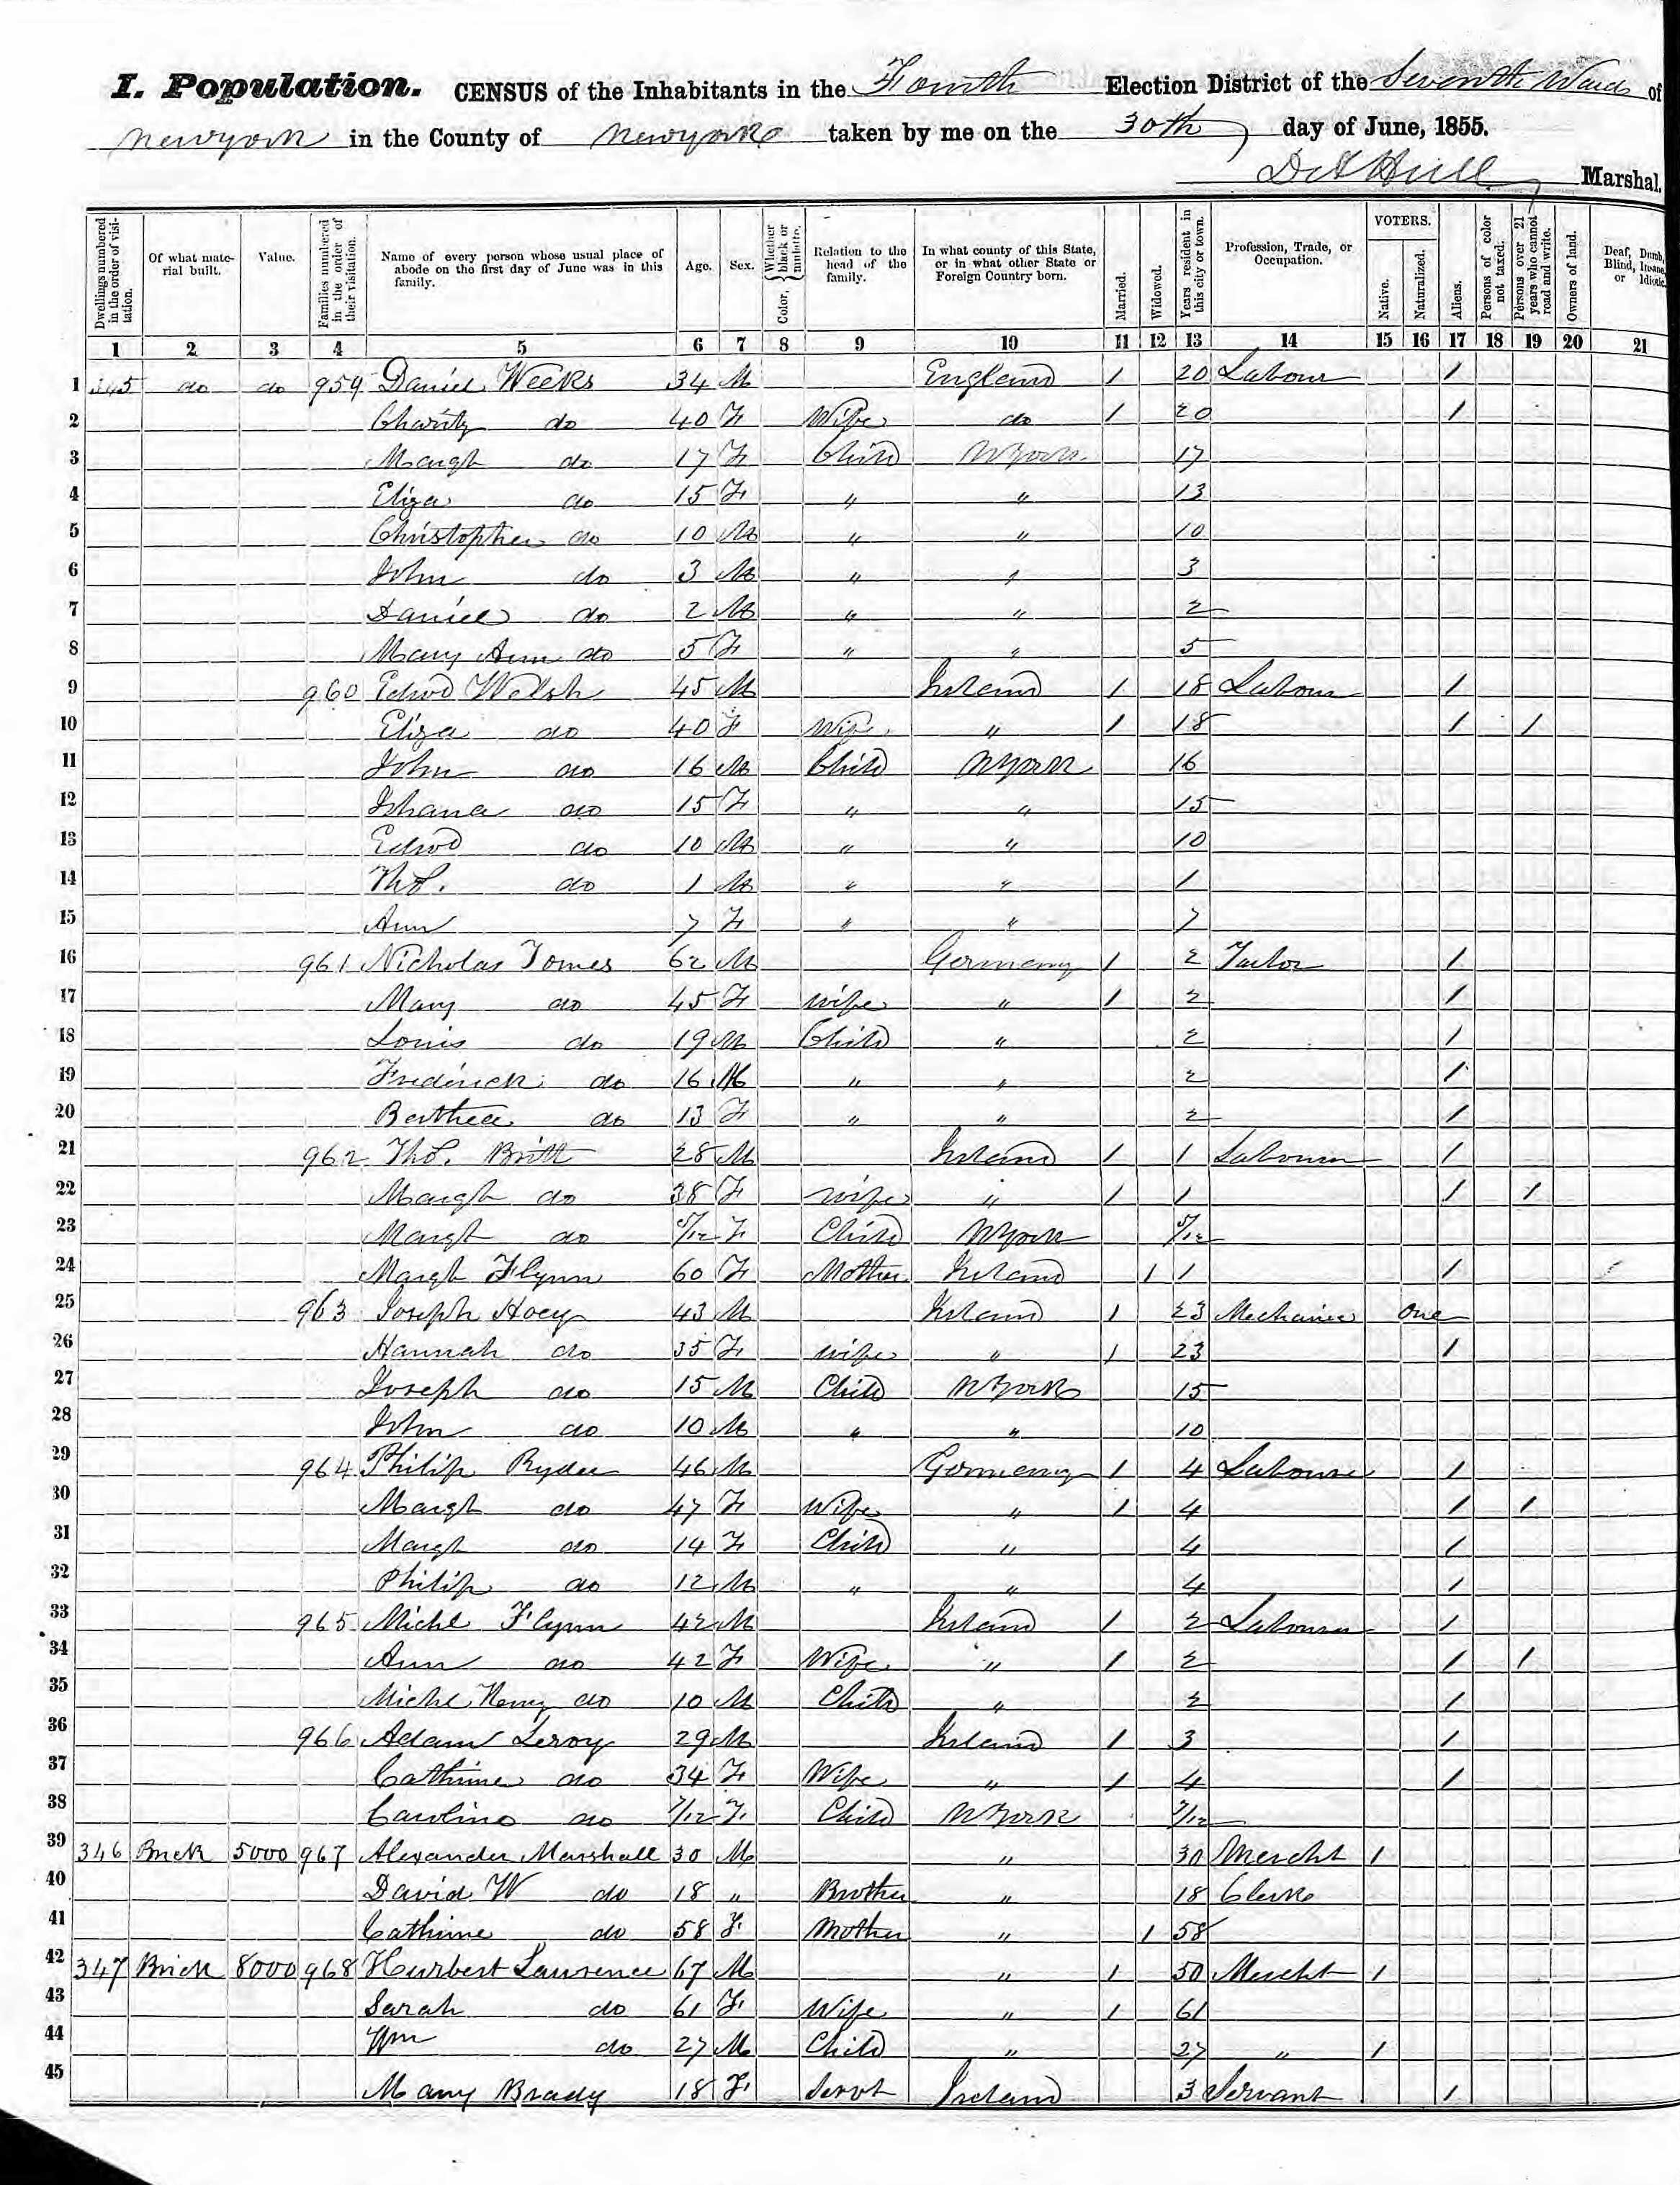 I. Population. CENSUS of the Inhabitants in the Fourth Election District of the Seventh Ward of
Newyork in the County of Newyork taken by me on the 30th day of June, 1855.
Hull Marshal.
Dwellings numbered in the order of visitation. Of what material built. Value. Families numbered in the order of their visitation. Name of every person whose usual place of abode on the first day of June was in this family. Age. Sex. Color. Whether black or mulatto. Relation to the head of the family. In what county of this State, or in what other State or Foreign Country born. Married. Widowed. Years resident in this city or town. Profession, Trade, or Occupation. VOTERS. Native. Naturalized. Aliens. Persons of color not taxed. Persons over 21 years who cannot read and write. Owners of land. Deaf, Dumb, Blind, Insane, or Idiotic.
1 2 3 4 5 6 7 8 9 10 11 12 13 14 15 16 17 18 19 20 21
1 345 do do 959 Daniel Weeks 34 M England 1 20 Labour 1
2 Charity do 40 F Wife do 1 20 1
3 Margh do 17 F Child NYork 17
4 Eliza do 15 F " " 13
5 Christopher do 10 M " " 10
6 John do 3 M " " 3
7 Daniel do 2 M " " 2
8 Mary Ann do 5 F " " 5
9 960 Edwd Welsh 45 M Ireland 1 18 Labour 1
10 Eliza do 40 F Wife " 1 18 1 1
11 John do 16 M Child NYork 16
12 Johana do 15 F " " 15
13 Edwd do 10 M " " 10
14 Thos. do 1 M " " 1
15 Ann 7 F " " 7
16 961 Nicholas Tomes 62 M Germany 1 2 Tailor 1
17 Mary do 45 F Wife " 1 2 1
18 Louis do 19 M Child " 2 1
19 Frederick do 16 M " " 2 1
20 Berthea do 13 F " " 2 1
21 962 Thos. Britt 28 M Ireland 1 1 Labourer 1
22 Margh do 38 F Wife " 1 1 1 1
23 Margh do 5/12 F Child NYork 5/12
24 Margh Flynn 60 F Mother Ireland 1 1 1
25 963 Joseph Hoey 43 M Ireland 1 23 Mechanic one
26 Hannah do 35 F Wife " 1 23 1
27 Joseph do 15 M Child NYork 15
28 John do 10 M " " 10
29 964 Philip Ryder 46 M Germany 1 4 Labourer 1
30 Margh do 47 F Wife " 1 4 1 1
31 Margh do 14 F Child " 4 1
32 Philip do 12 M " " 4 1
33 965 Michl Flynn 42 M Ireland 1 2 Labourer 1
34 Ann do 42 F Wife " 1 2 1 1
35 Michl Henry do 10 M Child " 2 1
36 966 Adam Leroy 29 M Ireland 1 3 1
37 Cathrine do 34 F Wife " 1 4 1
38 Caroline do 7/12 F Child NYork 7/12
39 346 Brick 5000 967 Alexander Marshall 30 M " 30 Mercht 1
40 David W do 18 " Brother " 18 Clerk
41 Cathrine do 58 F Mother " 1 58
42 347 Brick 8000 968 Hurbert Laurence 67 M " 1 50 Mercht 1
43 Sarah do 61 F Wife " 1 61
44 Wm do 27 M Child " 27 " 1
45 Mary Brady 18 F Servt Ireland 3 Servant 1